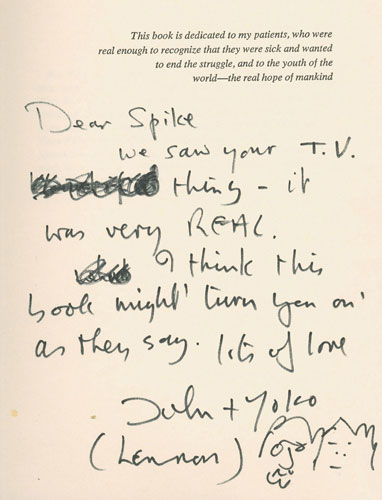 This book is dedicated to my patients, who were
real enough to recognize that they were sick and wanted
to end the struggle, and to the youth of the
world—the real hope of mankind
Dear Spike
we saw your T.V.
thing - it
was very REAL.
I think this
book might 'turn you on'
as they say. lots of love
John + Yoko
(Lennon)